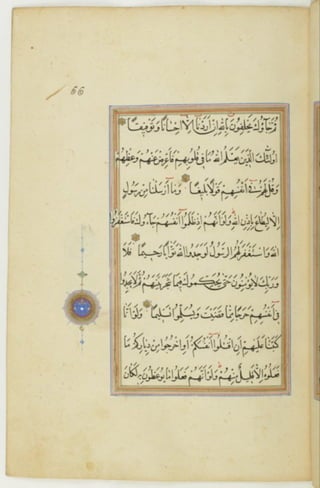 66
ثم جاؤك يحلفون بالله ان اردنا الا احسانا وتوفيقا
اولئك الذين يعلم الله ما فى قلوبهم فاعرض عنهم وعظهم
وقل لهم فى انفسهم قولا بليغا وما ارسلنا من رسول
الا ليطاع باذن الله ولو انهم اذ ظلموا انفسهم جاؤك فاستغفروا
الله واستغفر لهم الرسول لوجدوا الله توابا رحيما فلا
وربك لا يؤمنون حتى يحكموك فيما شجر بينهم ثم لا يجدوا
فى انفسهم حرجا مما قضيت ويسلموا تسليما ولو انا
كتبنا عليهم ان اقتلوا انفسكم او اخرجوا من دياركم ما
فعلوه الا قليل منهم ولو انهم فعلوا ما يوعظون به لكان